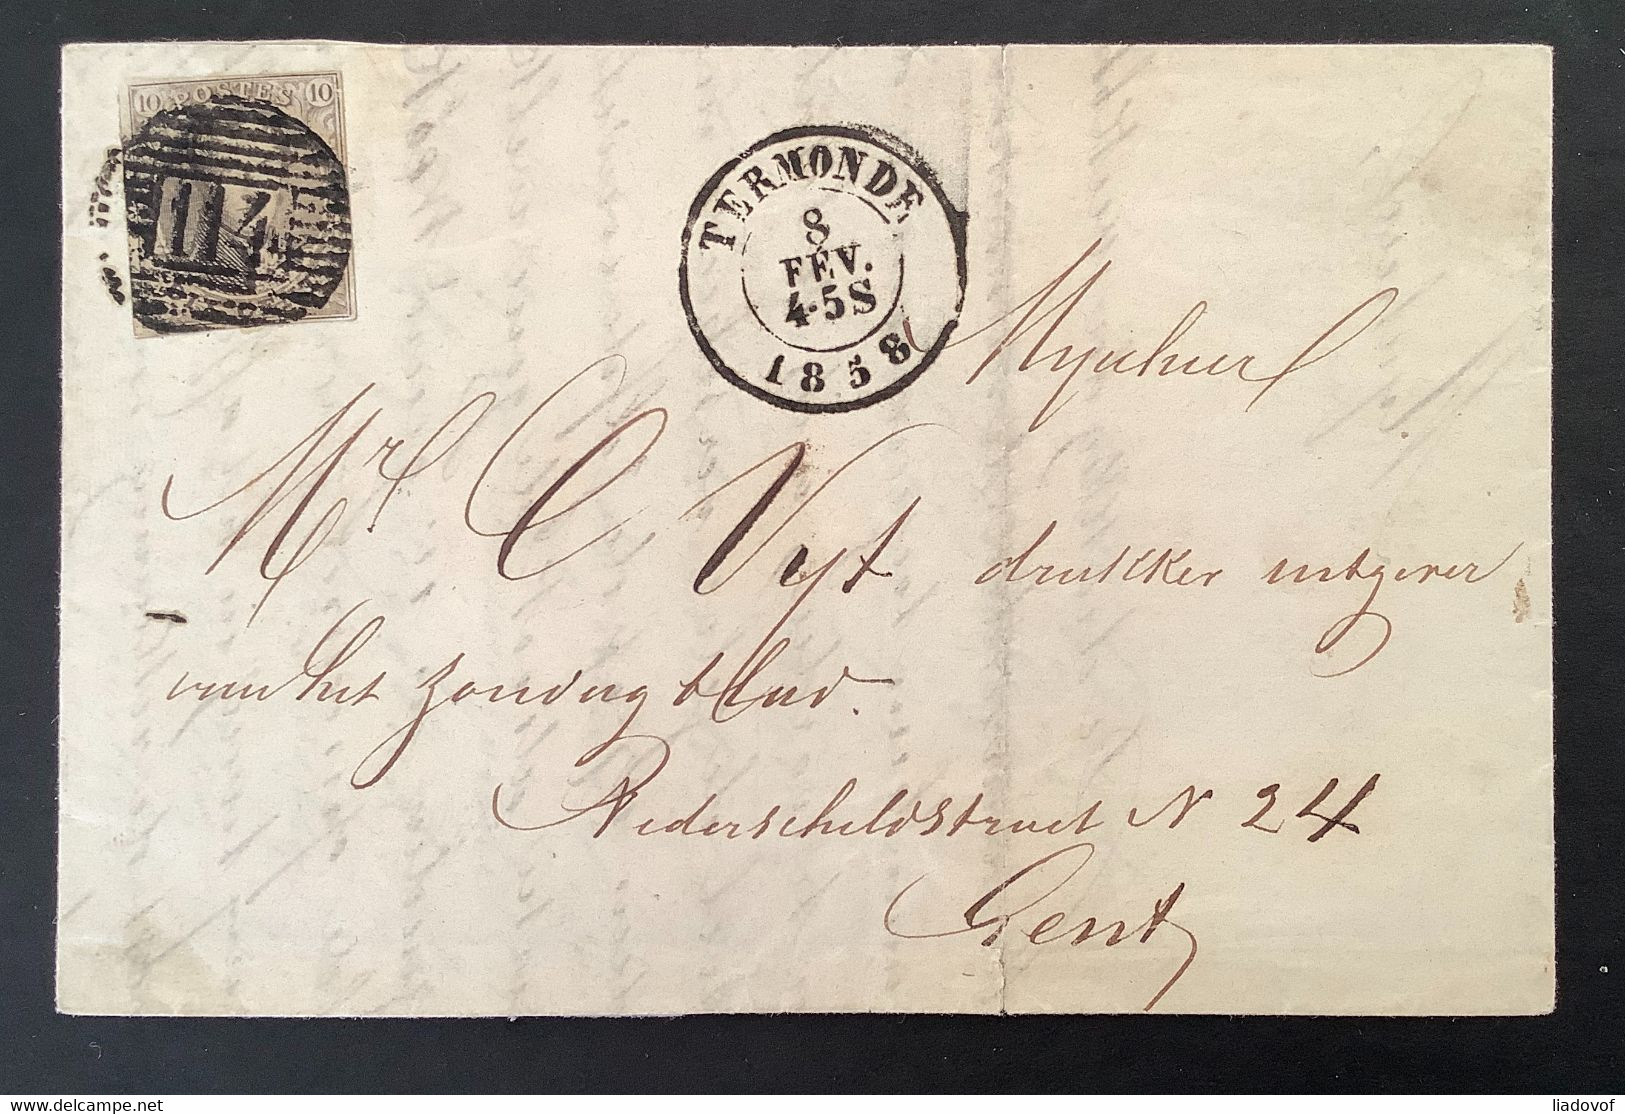 10 POSTES 10
114
TERMONDE
8
FÉV.
4-5S
1858
Mynheer
Mr C Vyt drukker uitgever
van het zondagblad.
Nederscheldstraet N 24
Gent
delcampe.net
liadovof